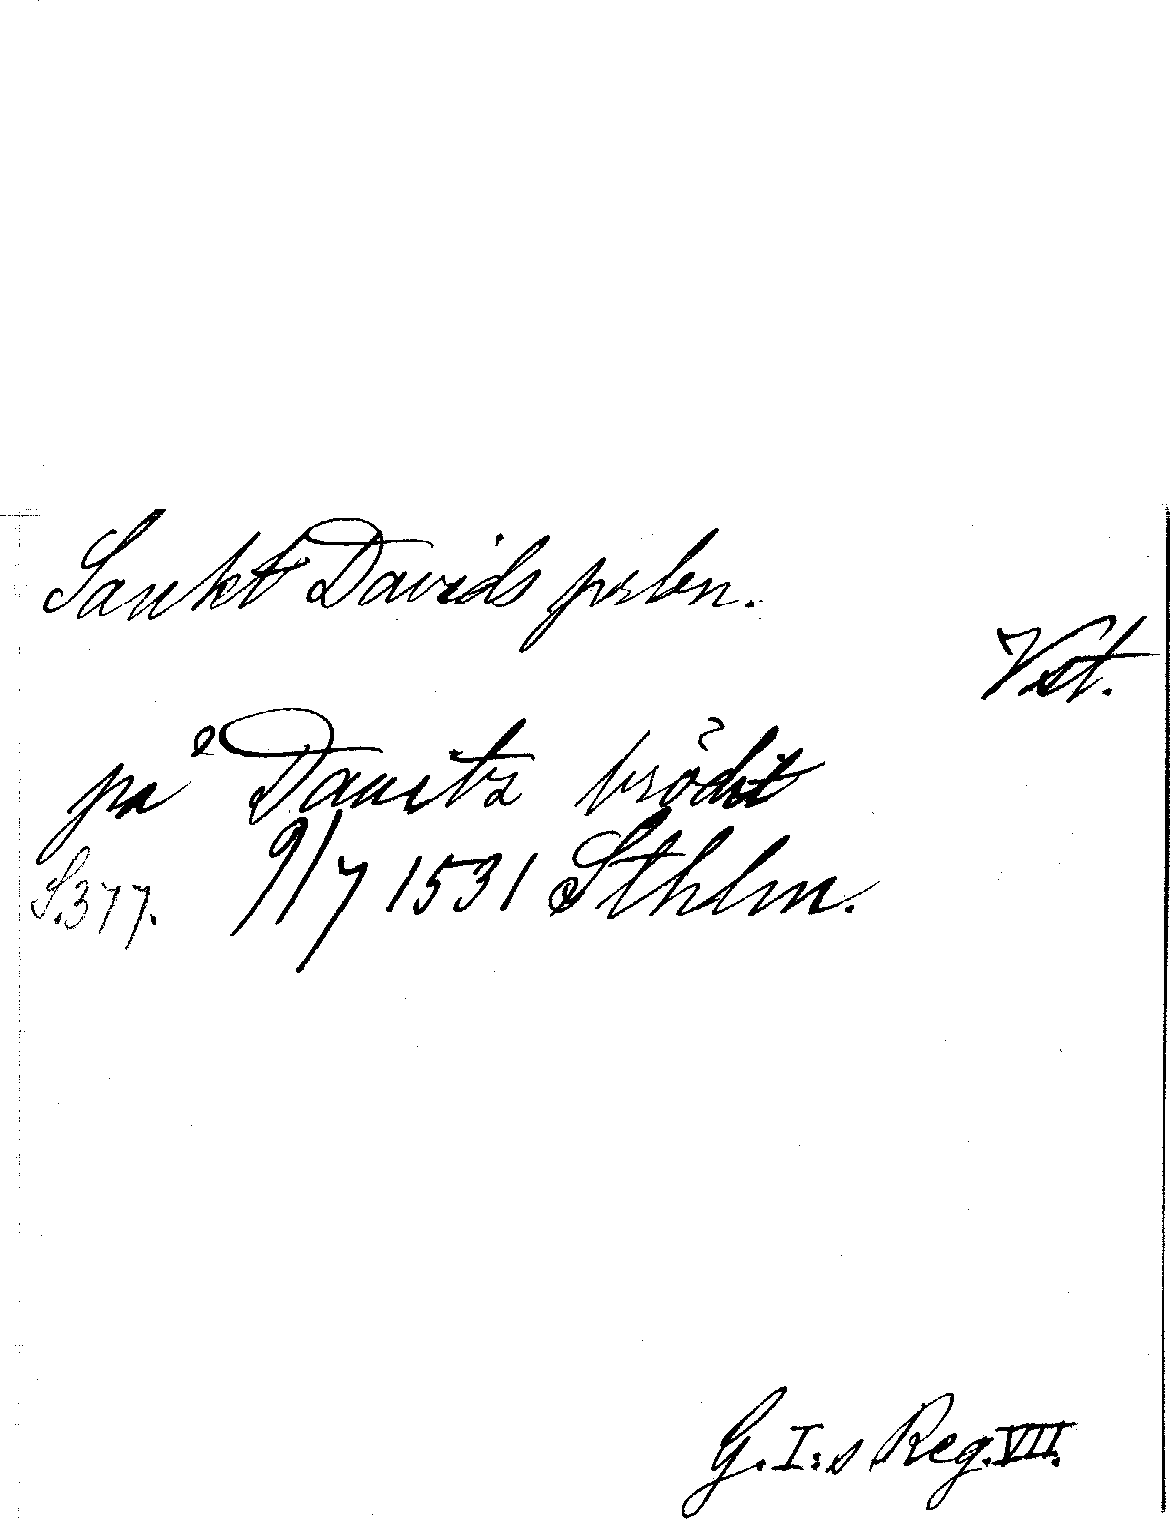 Sankt Davids prbn.
Vst.
på Dauitz brödit
S.377. 9/7 1531 Sthlm.
G.I:s Reg.VII.